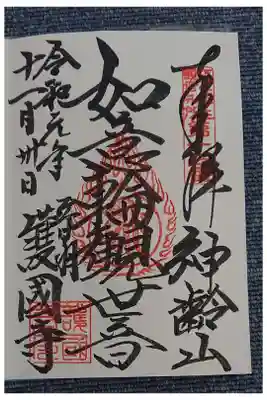 奉拝 神齢山
如意輪観世音
音羽 護國寺
令和元年
十一月卅日